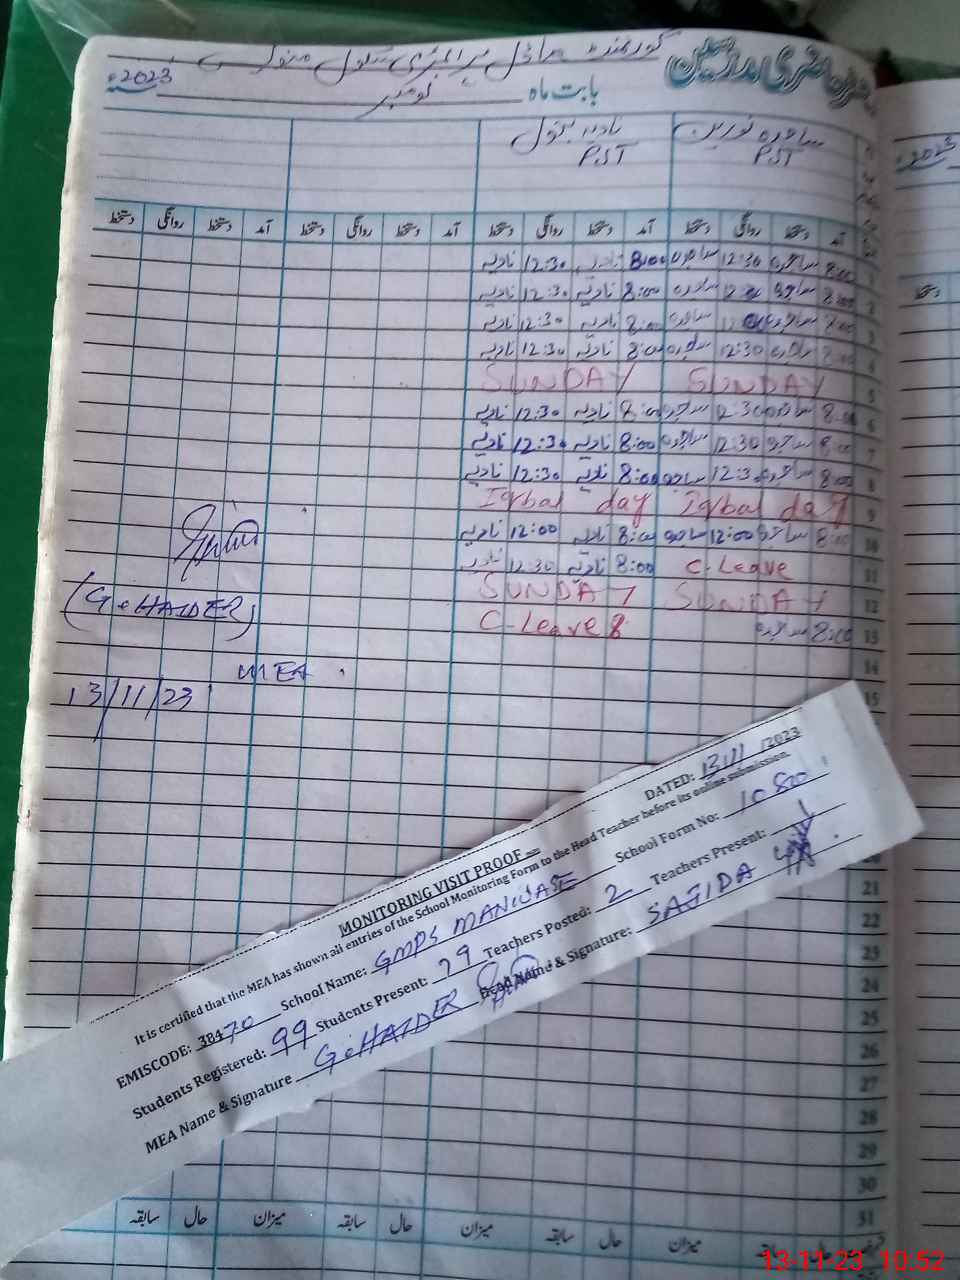 حاضری مدرسین
گورنمنٹ ماڈل پرائمری سکول
بابت ماہ نومبر 2023ء
ساجدہ نورین نادیہ بتول
PST PST
آمد دستخط روانگی دستخط آمد دستخط روانگی دستخط آمد دستخط روانگی دستخط آمد دستخط روانگی دستخط
1 8:00 ساجدہ 12:30 ساجدہ 8:00 نادیہ 12:30 نادیہ
2 8:00 ساجدہ 12:30 ساجدہ 8:00 نادیہ 12:30 نادیہ
3 8:00 ساجدہ ساجدہ 8:00 نادیہ 12:30 نادیہ
4 8:00 ساجدہ 12:30 ساجدہ 8:00 نادیہ 12:30 نادیہ
5 SUNDAY SUNDAY
6 8:00 ساجدہ 12:30 ساجدہ 8:00 نادیہ 12:30 نادیہ
7 8:00 ساجدہ 12:30 ساجدہ 8:00 نادیہ 12:30 نادیہ
8 8:00 ساجدہ 12:30 ساجدہ 8:00 نادیہ 12:30 نادیہ
9 Iqbal day Iqbal day
10 8:00 ساجدہ 12:00 ساجدہ 8:00 نادیہ 12:00 نادیہ
11 C-Leave 8:00 نادیہ 12:30 نادیہ
12 SUNDAY SUNDAY
13 8:00 ساجدہ C-Leave 8
14
15
(G.HAIDER)
MEA
13/11/23
DATED: 13/11/2023
MONITORING VISIT PROOF
It is certified that the MEA has shown all entries of the School Monitoring Form to the Head Teacher before its online submission.
EMISCODE: 38470 School Name: GMPS MANWASE School Form No: 10800
Students Registered: 99 Students Present: 79 Teachers Posted: 2 Teachers Present: 1
MEA Name & Signature G.HAIDER Head Name & Signature: SAJIDA
21
22
23
24
25
26
27
28
29
30
31
میزان حال سابقہ میزان حال سابقہ میزان حال سابقہ
2023
دستخط
13-11-23 10:52